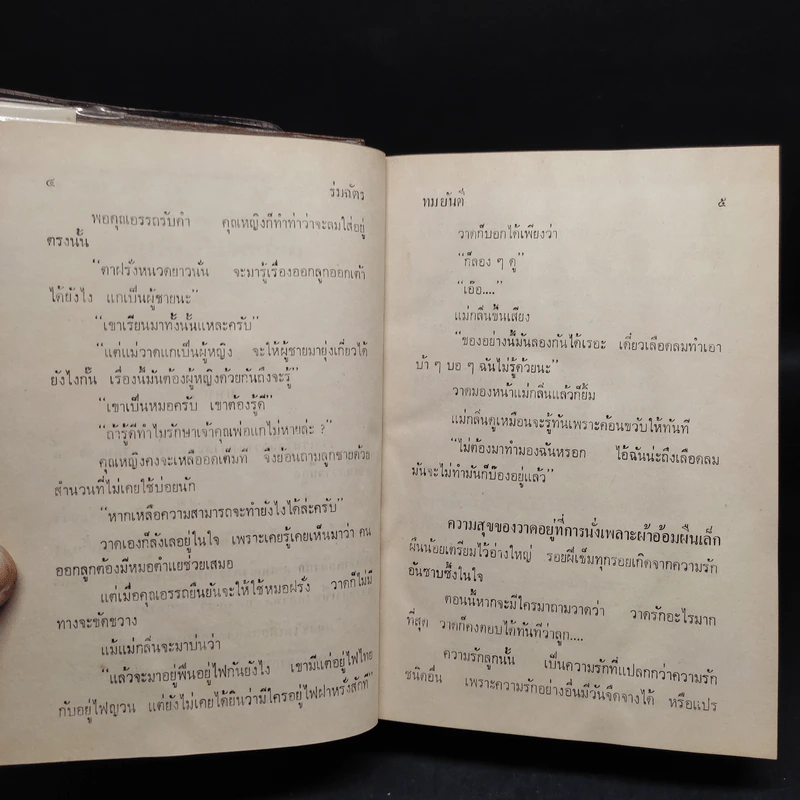 ๔ ร่มฉัตร
พอคุณอรรถรับคำ คุณหญิงก็ทำท่าว่าจะลมใส่อยู่
ตรงนั้น
“ตาฝรั่งหนวดยาวนั่น จะมารู้เรื่องออกลูกออกเต้า
ได้ยังไง แกเป็นผู้ชายนะ”
“เขาเรียนมาทั้งนั้นแหละครับ”
“แต่แม่วาดแกเป็นผู้หญิง จะให้ผู้ชายมายุ่งเกี่ยวได้
ยังไงกั๊น เรื่องนี้มันต้องผู้หญิงด้วยกันถึงจะรู้”
“เขาเป็นหมอครับ เขาต้องรู้ดี”
“ถ้ารู้ดีทำไมรักษาเจ้าคุณพ่อแกไม่หายล่ะ ?”
คุณหญิงคงจะเหลืออดเต็มที จึงย้อนถามลูกชายด้วย
สำนวนที่ไม่เคยใช้บ่อยนัก
“หากเหลือความสามารถจะทำยังไงได้ล่ะครับ”
วาดเองก็ลังเลอยู่ในใจ เพราะเคยรู้เคยเห็นมาว่า คน
ออกลูกต้องมีหมอตำแยช่วยเสมอ
แต่เมื่อคุณอรรถยืนยันจะให้ใช้หมอฝรั่ง วาดก็ไม่มี
ทางจะขัดขวาง
แม้แม่กลิ่นจะมาบ่นว่า
“แล้วจะมาอยู่ฟืนอยู่ไฟกันยังไง เขามีแต่อยู่ไฟไทย
กับอยู่ไฟญวน แต่ยังไม่เคยได้ยินว่ามีใครอยู่ไฟฝาหรั่งสักที”
ทมยันตี ๕
วาดก็บอกได้เพียงว่า
“ก็ลอง ๆ ดู”
“เอ๊อ....”
แม่กลิ่นขึ้นเสียง
“ของอย่างนี้มันลองกันได้เรอะ เดี๋ยวเลือดลมทำเอา
บ้า ๆ บอ ๆ ฉันไม่รู้ด้วยนะ”
วาดมองหน้าแม่กลิ่นแล้วก็ยิ้ม
แม่กลิ่นดูเหมือนจะรู้ทันเพราะค้อนขวับให้ทันที
“ไม่ต้องมาทำมองฉันหรอก ไอ้ฉันน่ะถึงเลือดลม
มันจะไม่ทำมันก็บ๊องอยู่แล้ว”
ความสุขของวาดอยู่ที่การนั่งเพลาะผ้าอ้อมผืนเล็ก
ผืนน้อยเตรียมไว้อ่างใหญ่ รอยฝีเข็มทุกรอยเกิดจากความรัก
อันซาบซึ้งในใจ
ตอนนี้หากจะมีใครมาถามวาดว่า วาดรักอะไรมาก
ที่สุด วาดก็คงตอบได้ทันทีว่าลูก....
ความรักลูกนั้น เป็นความรักที่แปลกกว่าความรัก
ชนิดอื่น เพราะความรักอย่างอื่นมีวันจืดจางได้ หรือแปร